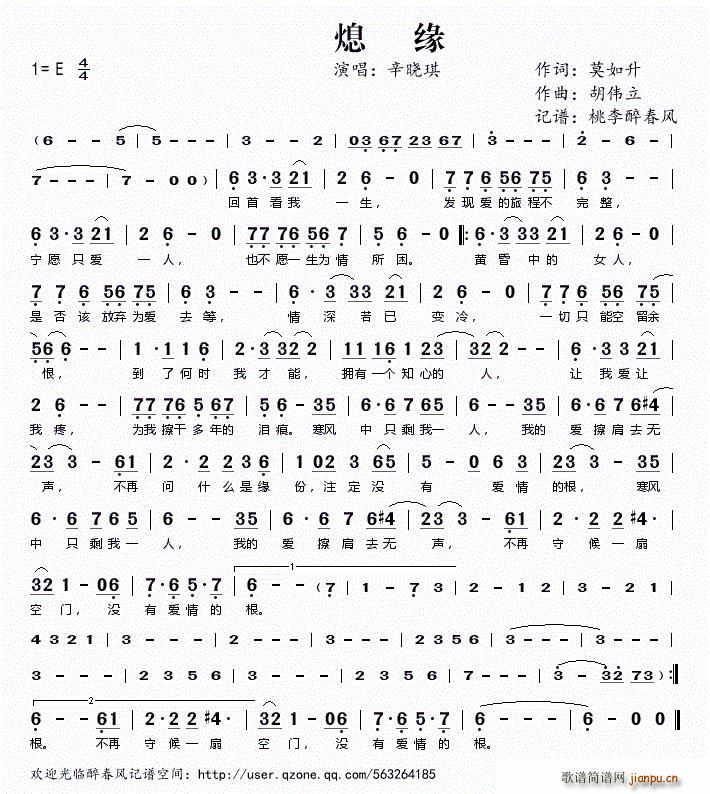 熄 缘
1= E 4/4 演唱：辛晓琪 作词：莫如升
作曲：胡伟立
记谱：桃李醉春风
( 6 - - 5 | 5 - - - | 3 - - 2 | 03 67 23 67 | 3 - - - | 2 - 6 -
7 - - - | 7 - 0 0 ) | 6 3 · 3 21 | 2 6 - 0 | 7 7 6 56 75 | 6 3 - -
回首看我 一生， 发现爱的旅程不 完整，
6 3 · 3 21 | 2 6 - 0 | 77 76 56 7 | 5 6 - 0 ‖: 6 · 3 33 21 | 2 6 - 0
宁愿只爱 一人， 也不愿一生为情 所困。 黄昏中的 女人，
7 7 6 56 75 | 6 3 - - | 6 · 3 33 21 | 2 6 - 0 | 7 7 6 56 75
是否该放弃为爱 去等， 情深若已 变冷， 一切只能空留余
56 6 - - | 1 · 1 1 1 | 2 · 3 32 2 | 11 11 6 1 23 | 32 2 - - | 6 · 3 3 21
恨， 到了何时 我才能， 拥有一个知心的 人， 让我爱让
2 6 - - | 77 76 5 67 | 5 6 - 35 | 6 · 6 7 65 | 6 - - 35 | 6 · 6 7 6#4
我疼， 为我擦干多年的 泪痕。寒风 中只剩我一 人，我的 爱擦肩去无
23 3 - 61 | 2 · 2 2 36 | 1 02 3 65 | 5 - 0 6 3 | 6 · 6 7 1 | 3 - - 35
声，不再 问什么是缘 份，注定没 有 爱情的根，寒风
6 · 6 7 65 | 6 - - 35 | 6 · 6 7 6#4 | 23 3 - 61 | 2 · 2 2 2#4
中只剩我一 人，我的 爱擦肩去无 声，不再 守候一扇
32 1 - 06 | 7 · 6 5 · 7 | 6 - - (7 | 1 - 7 3 | 2 - 1 2 | 3 - 2 1
空门，没 有爱情的 根。
4 3 2 1 | 3 - - - | 2 3 5 3 | 3 - - - | 2 3 5 6 | 3 - - - | 3 - - -
3 - - - | 2 3 5 6 | 2 3 5 6 | 7 - - - | 3 - 3 - | 3 - 32 73 ) :‖
6 - - 61 | 2 · 2 2 #4 | 32 1 - 06 | 7 · 6 5 · 7 | 6 - - - | 6 - 0 0 ‖
根。 不再 守候一扇 空门，没 有爱情的 根。
欢迎光临醉春风记谱空间：http://user.qzone.qq.com/563264185
歌谱简谱网 jianpu.cn